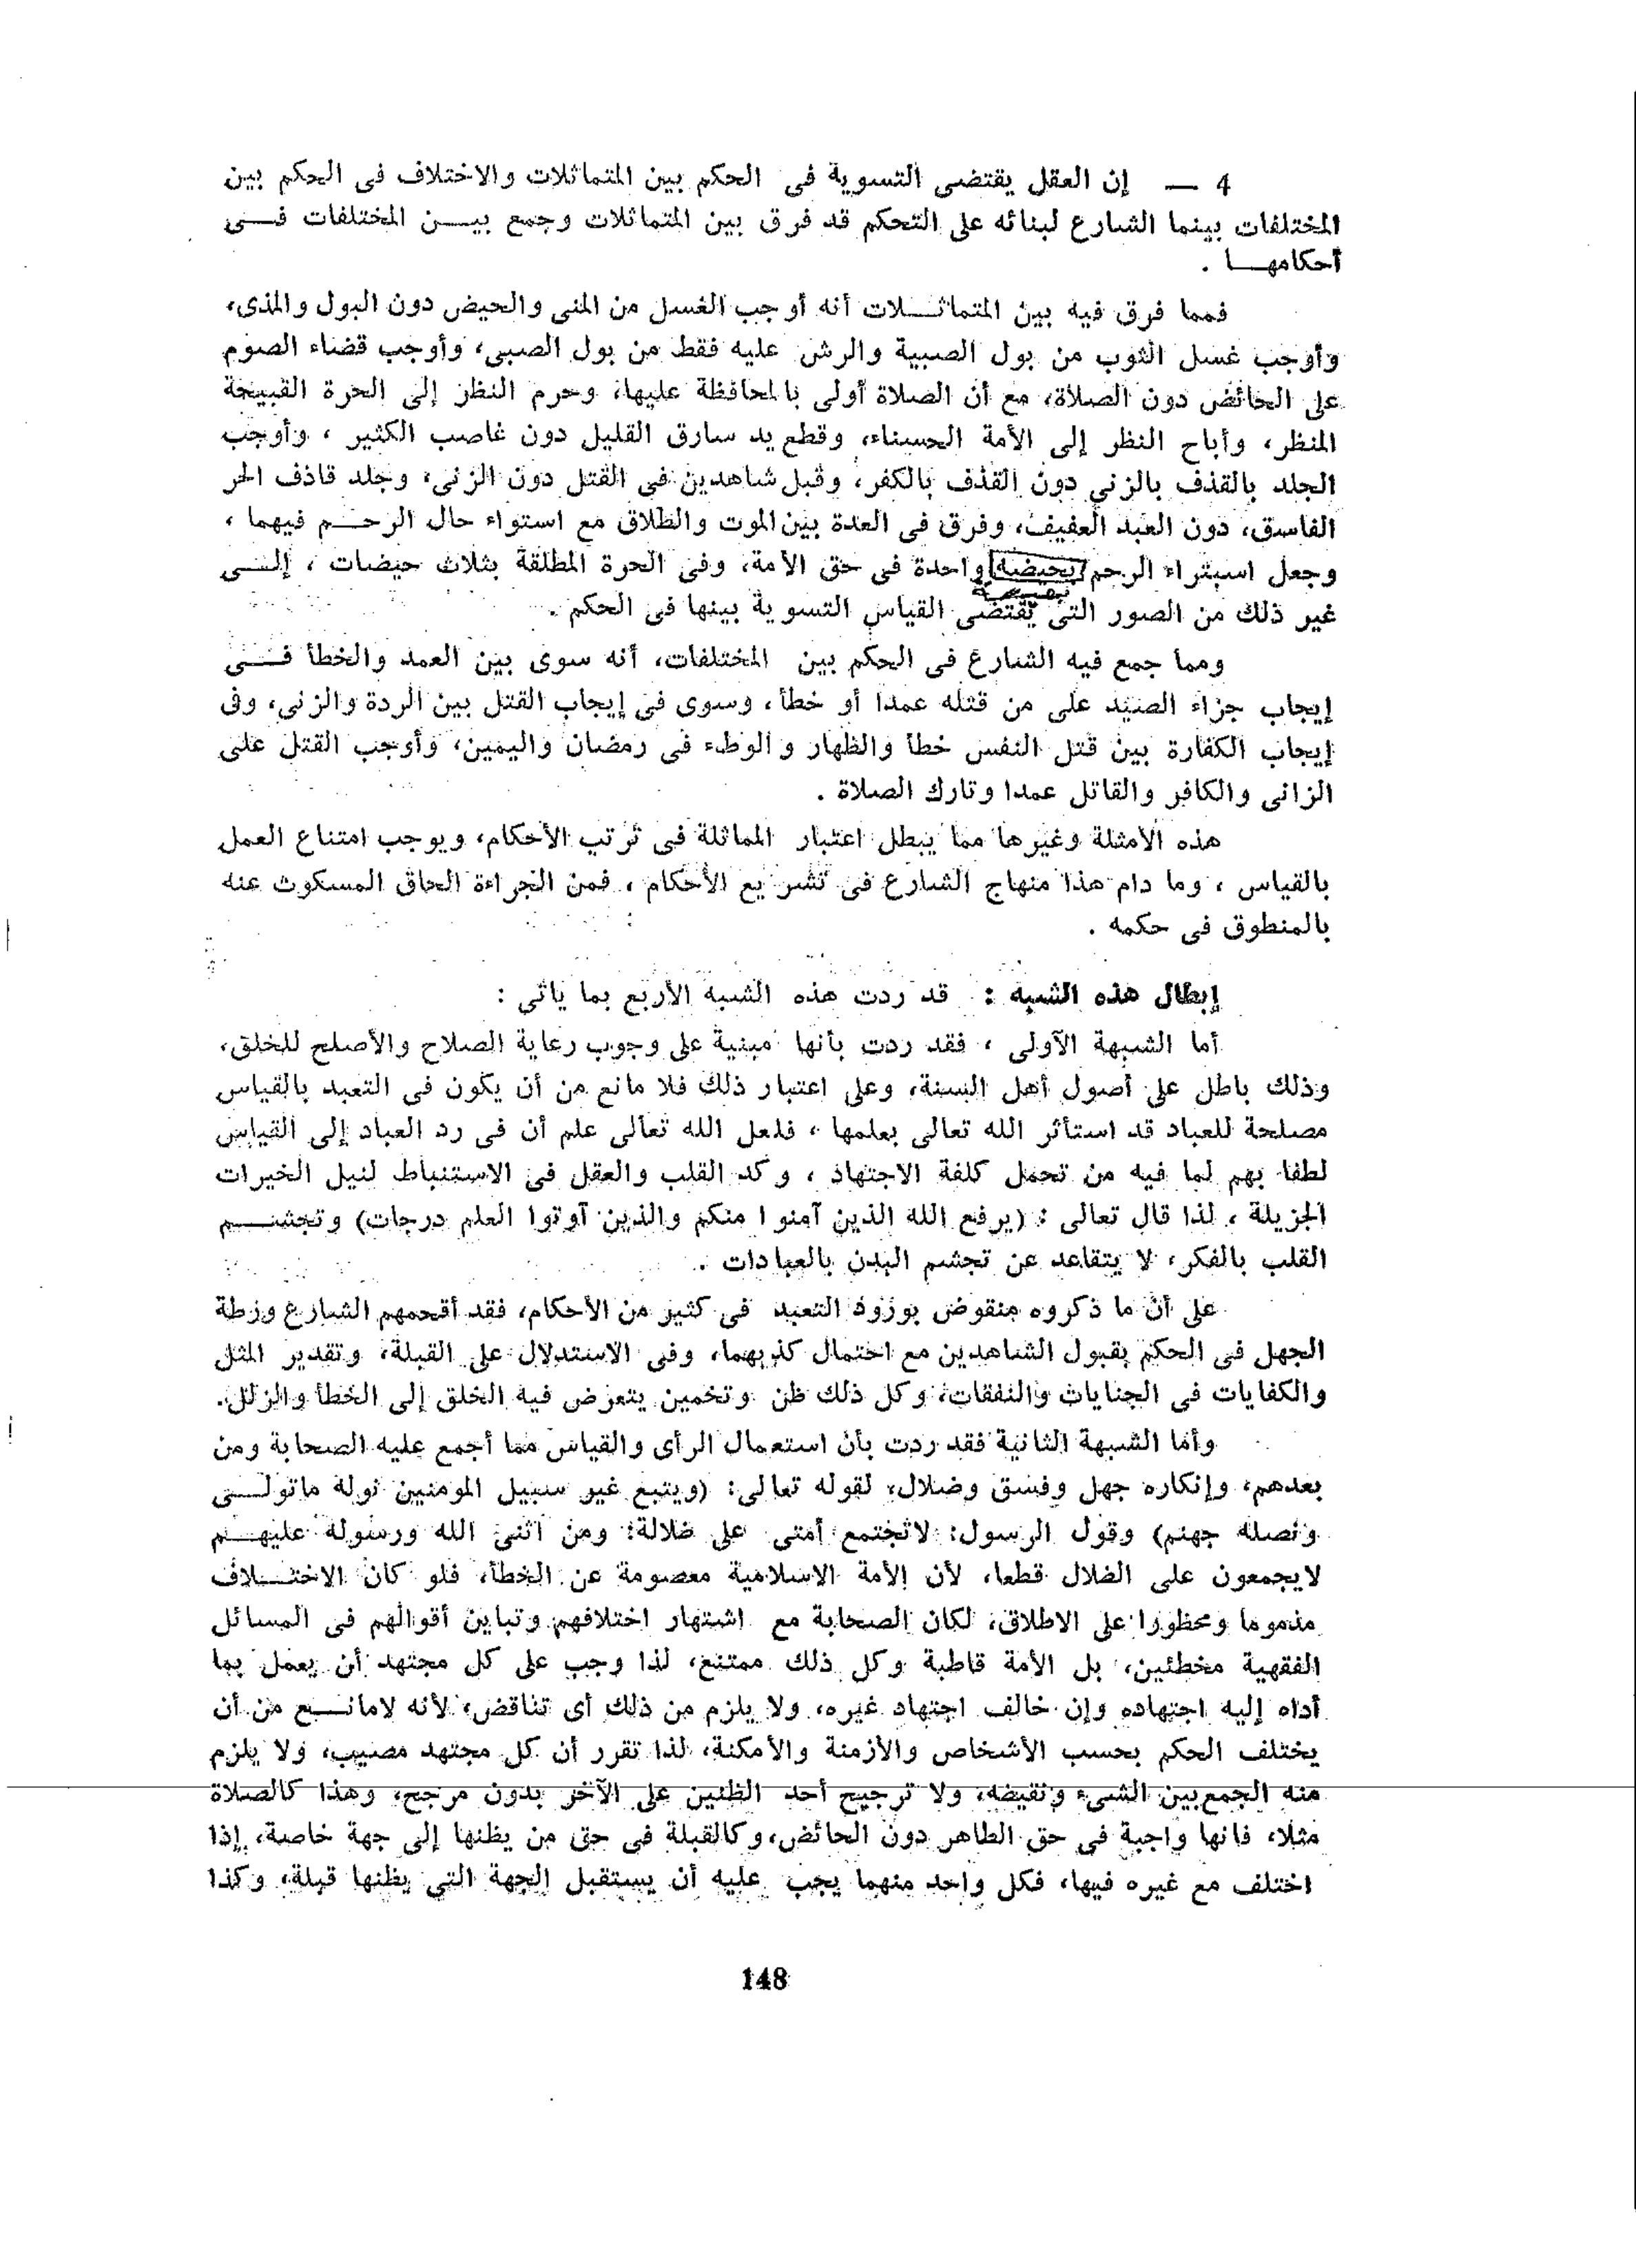 4 — إن العقل يقتضى التسوية فى الحكم بين المتماثلات والاختلاف فى الحكم بين
المختلفات بينما الشارع لبنائه على التحكم قد فرق بين المتماثلات وجمع بيـــن المختلفات فـــى
أحكامهـــا .
فمما فرق فيه بين المتماثـــلات أنه أوجب الغسل من المنى والحيض دون البول والمذى،
وأوجب غسل الثوب من بول الصبية والرش عليه فقط من بول الصبى، وأوجب قضاء الصوم
على الحائض دون الصلاة، مع أن الصلاة أولى بالمحافظة عليها، وحرم النظر إلى الحرة القبيحة
المنظر، وأباح النظر إلى الأمة الحسناء، وقطع يد سارق القليل دون غاصب الكثير ، وأوجب
الجلد بالقذف بالزنى دون القذف بالكفر، وقبل شاهدين فى القتل دون الزنى، وجلد قاذف الحر
الفاسق، دون العبد العفيف، وفرق فى العدة بين الموت والطلاق مع استواء حال الرحـــم فيهما ،
وجعل استبراء الرحم بحيضة واحدة فى حق الأمة، وفى الحرة المطلقة بثلاث حيضات ، إلـــى
غير ذلك من الصور التى يقتضى القياس التسوية بينها فى الحكم .
ومما جمع فيه الشارع فى الحكم بين المختلفات، أنه سوى بين العمد والخطأ فـــى
إيجاب جزاء الصيد على من قتله عمدا أو خطأ، وسوى فى إيجاب القتل بين الردة والزنى، وفى
إيجاب الكفارة بين قتل النفس خطأ والظهار والوطء فى رمضان واليمين، وأوجب القتل على
الزانى والكافر والقاتل عمدا وتارك الصلاة .
هذه الأمثلة وغيرها مما يبطل اعتبار المماثلة فى ترتب الأحكام، ويوجب امتناع العمل
بالقياس ، وما دام هذا منهاج الشارع فى تشريع الأحكام ، فمن الجراءة الحاق المسكوت عنه
بالمنطوق فى حكمه .
إبطال هذه الشبه : قد ردت هذه الشبه الأربع بما ياتى :
أما الشبهة الأولى ، فقد ردت بأنها مبنية على وجوب رعاية الصلاح والأصلح للخلق،
وذلك باطل على أصول أهل السنة، وعلى اعتبار ذلك فلا مانع من أن يكون فى التعبد بالقياس
مصلحة للعباد قد استأثر الله تعالى بعلمها ، فلعل الله تعالى علم أن فى رد العباد إلى القياس
لطفا بهم لما فيه من تحمل كلفة الاجتهاد ، وكد القلب والعقل فى الاستنباط لنيل الخيرات
الجزيلة ، لذا قال تعالى : (يرفع الله الذين آمنوا منكم والذين آوتوا العلم درجات) وتجشـــم
القلب بالفكر، لا يتقاعد عن تجشم البدن بالعبادات .
على أن ما ذكروه منقوض بورود التعبد فى كثير من الأحكام، فقد أقحمهم الشارع ورطة
الجهل فى الحكم بقبول الشاهدين مع احتمال كذبهما، وفى الاستدلال على القبلة، وتقدير المثل
والكفايات فى الجنايات والنفقات، وكل ذلك ظن وتخمين يتعرض فيه الخلق إلى الخطأ والزلل.
وأما الشبهة الثانية فقد ردت بأن استعمال الرأى والقياس مما أجمع عليه الصحابة ومن
بعدهم، وإنكاره جهل وفسق وضلال، لقوله تعالى: (ويتبع غير سبيل المومنين نوله ماتولـــى
ونصله جهنم) وقول الرسول: لاتجتمع أمتى على ضلالة: ومن اثنى الله ورسوله عليهـــم
لايجمعون على الضلال قطعا، لأن الأمة الاسلامية معصومة عن الخطأ، فلو كان الاختـــلاف
مذموما ومحظورا على الاطلاق، لكان الصحابة مع اشتهار اختلافهم وتباين أقوالهم فى المسائل
الفقهية مخطئين، بل الأمة قاطبة وكل ذلك ممتنع، لذا وجب على كل مجتهد أن يعمل بما
أداه إليه اجتهاده وإن خالف اجتهاد غيره، ولا يلزم من ذلك أى تناقض، لأنه لامانـــع من أن
يختلف الحكم بحسب الأشخاص والأزمنة والأمكنة، لذا تقرر أن كل مجتهد مصيب، ولا يلزم
منه الجمع بين الشىء ونقيضه، ولا ترجيح أحد الظنين على الآخر بدون مرجح، وهذا كالصلاة
مثلا، فانها واجبة فى حق الطاهر دون الحائض، وكالقبلة فى حق من يظنها إلى جهة خاصة، إذا
اختلف مع غيره فيها، فكل واحد منهما يجب عليه أن يستقبل الجهة التى يظنها قبلة، وكذا
148